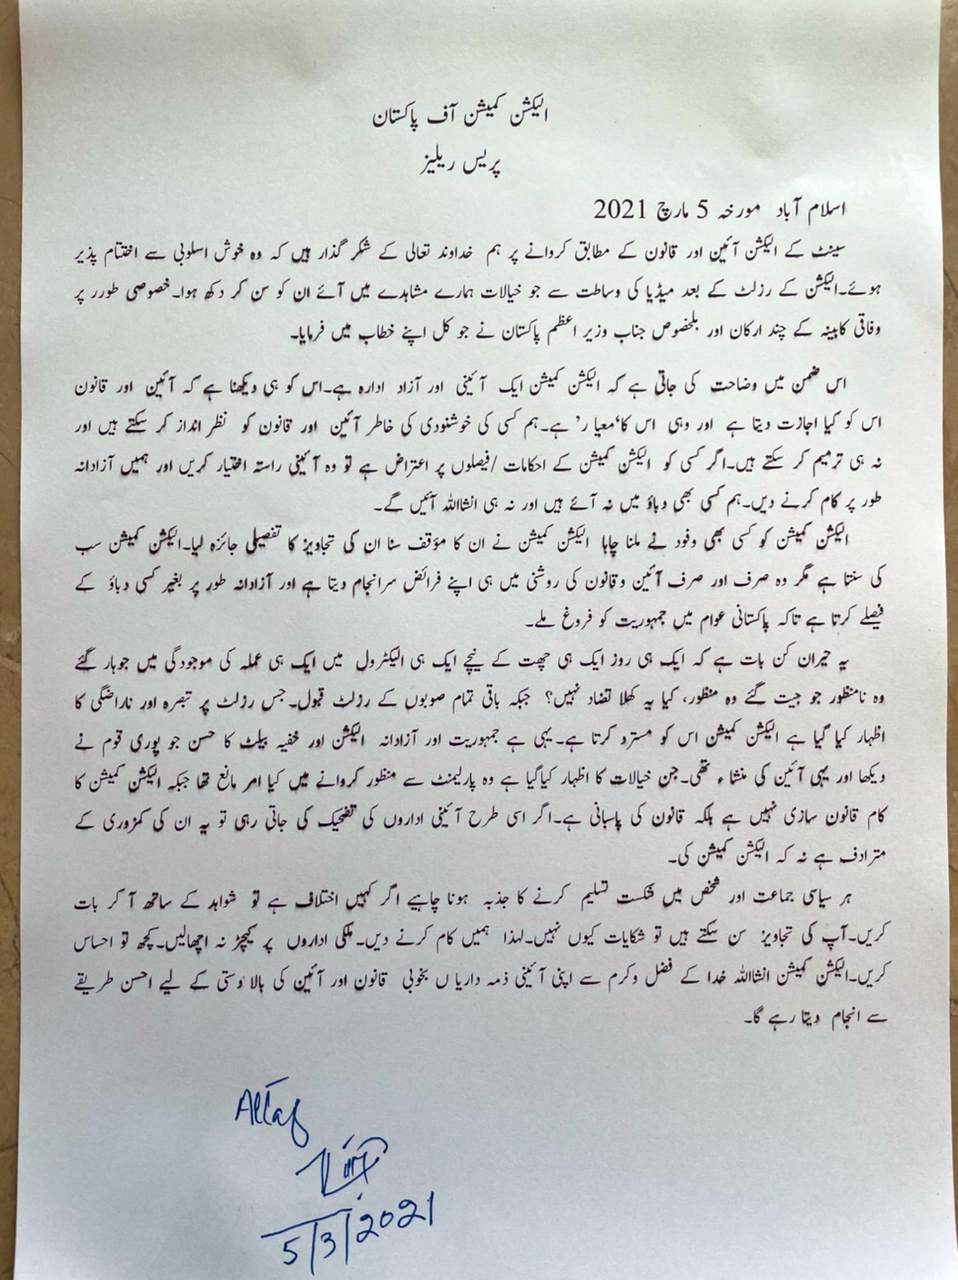 الیکشن کمیشن آف پاکستان
پریس ریلیز
اسلام آباد مورخہ 5 مارچ 2021
سینٹ کے الیکشن آئین اور قانون کے مطابق کروانے پر ہم خداوند تعالی کے شکر گذار ہیں کہ وہ خوش اسلوبی سے اختتام پذیر
ہوئے۔الیکشن کے رزلٹ کے بعد میڈیا کی وساطت سے جو خیالات ہمارے مشاہدے میں آئے ان کو سن کر دکھ ہوا۔خصوصی طورر پر
وفاقی کابینہ کے چند ارکان اور بلخصوص جناب وزیر اعظم پاکستان نے جو کل اپنے خطاب میں فرمایا۔
اس ضمن میں وضاحت کی جاتی ہے کہ الیکشن کمیشن ایک آئینی اور آزاد ادارہ ہے۔اس کو ہی دیکھنا ہے کہ آئین اور قانون
اس کو کیا اجازت دیتا ہے اور وہی اس کا‘معیا ر’ ہے۔ہم کسی کی خوشنودی کی خاطر آئین اور قانون کو نظر انداز کر سکتے ہیں اور
نہ ہی ترمیم کر سکتے ہیں۔اگر کسی کو الیکشن کمیشن کے احکامات /فیصلوں پر اعتراض ہے تو وہ آئینی راستہ اختیار کریں اور ہمیں آزادانہ
طور پر کام کرنے دیں۔ہم کسی بھی دباؤ میں نہ آئے ہیں اور نہ ہی انشااللہ آئیں گے۔
الیکشن کمیشن کو کسی بھی وفود نے ملنا چاہا الیکشن کمیشن نے ان کا مؤقف سنا ان کی تجاویز کا تفصیلی جائزہ لیا۔الیکشن کمیشن سب
کی سنتا ہے مگر وہ صرف اور صرف آئین و قانون کی روشنی میں ہی اپنے فرائض سرانجام دیتا ہے اور آزادانہ طور پر بغیر کسی دباؤ کے
فیصلے کرتا ہے تاکہ پاکستانی عوام میں جمہوریت کو فروغ ملے۔
یہ حیران کن بات ہے کہ ایک ہی روز ایک ہی چھت کے نیچے ایک ہی الیکٹرول میں ایک ہی عملہ کی موجودگی میں جوہار گئے
وہ نامنظور جو جیت گئے وہ منظور، کیا یہ کھلا تضاد نہیں؟ جبکہ باقی تمام صوبوں کے رزلٹ قبول۔جس رزلٹ پر تبصرہ اور ناراضگی کا
اظہار کیا گیا ہے الیکشن کمیشن اس کو مسترد کرتا ہے۔یہی ہے جمہوریت اور آزادانہ الیکشن اور خفیہ بیلٹ کا حسن جو پوری قوم نے
دیکھا اور یہی آئین کی منشاء تھی۔جن خیالات کا اظہار کیاگیا ہے وہ پارلیمنٹ سے منظور کروانے میں کیا امر مانع تھا جبکہ الیکشن کمیشن کا
کام قانون سازی نہیں ہے بلکہ قانون کی پاسبانی ہے۔اگر اسی طرح آئینی اداروں کی تضحیک کی جاتی رہی تو یہ ان کی کمزوری کے
مترادف ہے نہ کہ الیکشن کمیشن کی۔
ہر سیاسی جماعت اور شخص میں شکست تسلیم کرنے کا جذبہ ہونا چاہیے اگر کہیں اختلاف ہے تو شواہد کے ساتھ آ کر بات
کریں۔آپ کی تجاویز سن سکتے ہیں تو شکایات کیوں نہیں۔لہذا ہمیں کام کرنے دیں۔ملکی اداروں پر کیچڑ نہ اچھالیں۔کچھ تو احساس
کریں۔الیکشن کمیشن انشااللہ خدا کے فضل وکرم سے اپنی آئینی ذمہ داریا ں بخوبی قانون اور آئین کی بالا دستی کے لیے احسن طریقے
سے انجام دیتا رہے گا۔
Altaf
5/3/2021